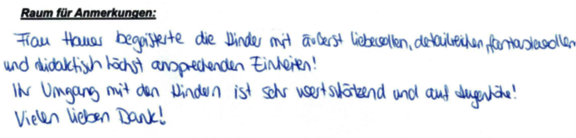 Raum für Anmerkungen:
Frau Hauer begeisterte die Kinder mit äußerst liebevollen, detailreichen, fantasievollen
und didaktisch höchst ansprechenden Einheiten!
Ihr Umgang mit den Kindern ist sehr wertschätzend und auf Augenhöhe!
Vielen lieben Dank!